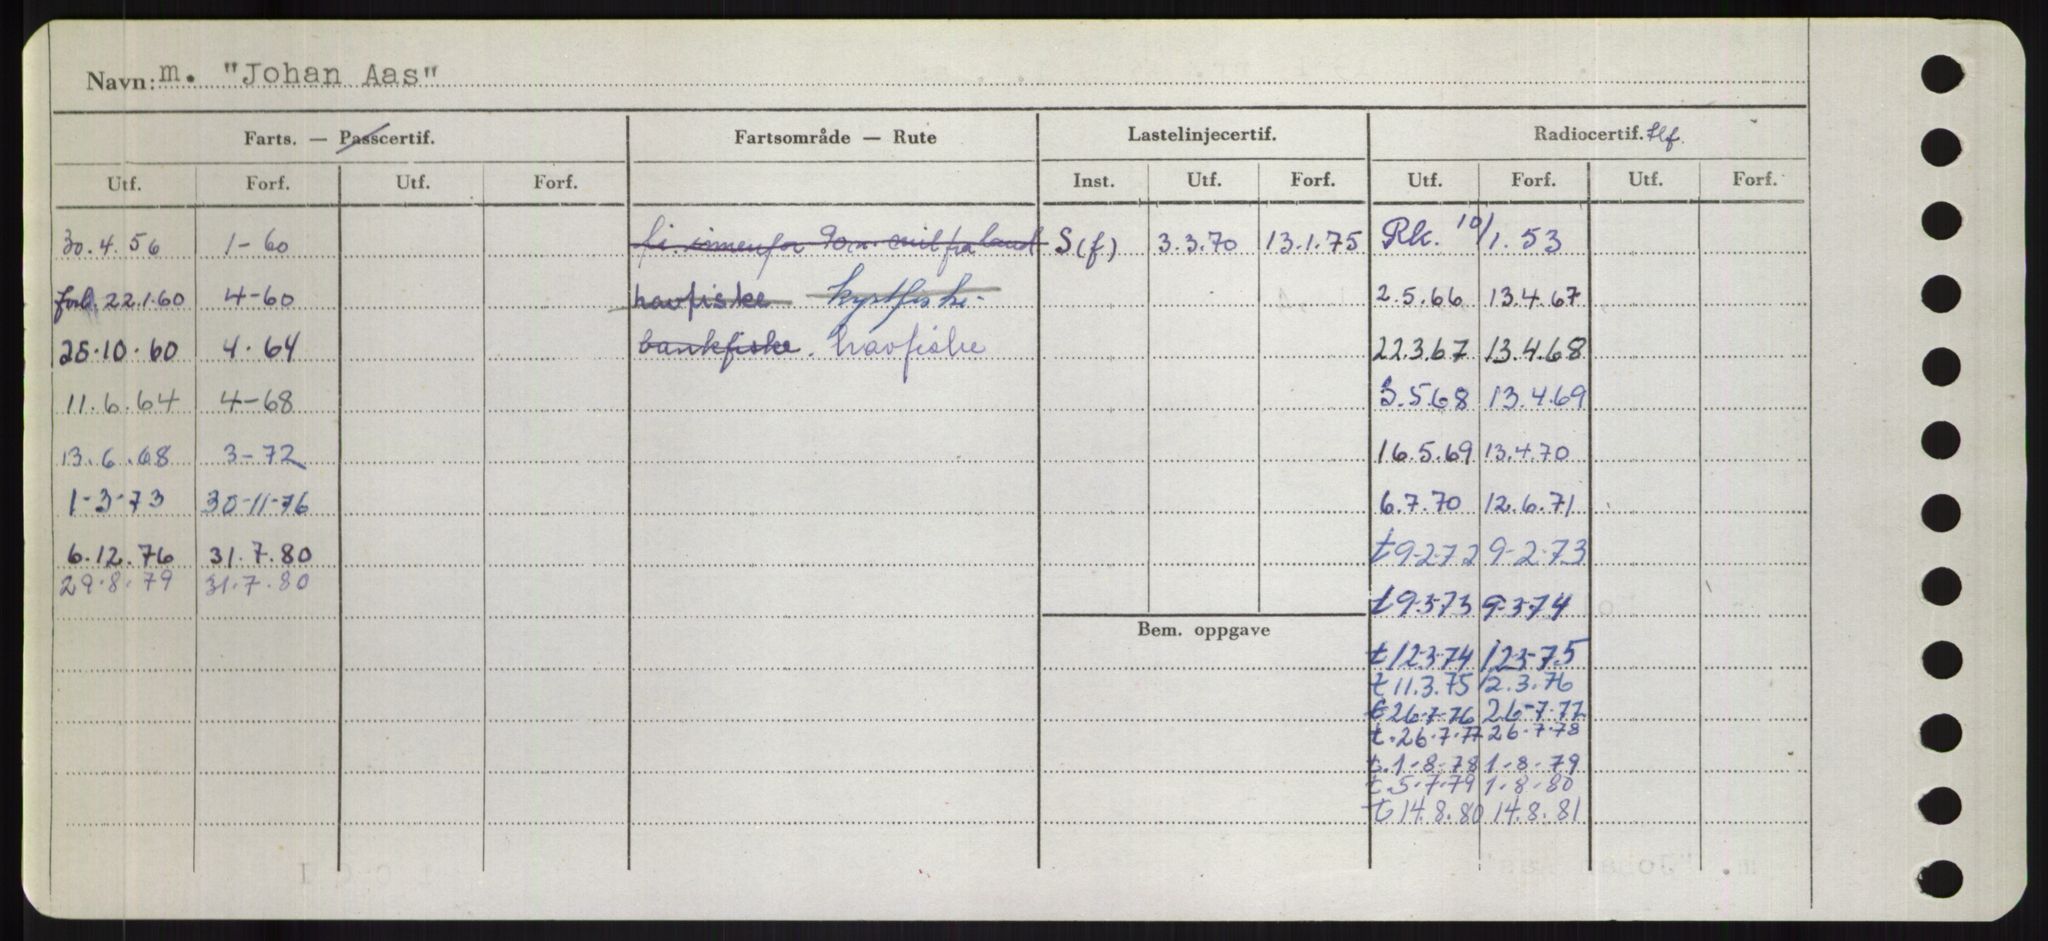 Navn: m. "Johan Aas"
Farts. — Passcertif. Fartsområde — Rute Lastelinjecertif. Radiocertif. tlf.
Utf. Forf. Utf. Forf. Inst. Utf. Forf. Utf. Forf. Utf. Forf.
30.4.56 1-60 fi. innenfor 90 mil fra land S(f) 3.3.70 13.1.75 Rk. 10/1.53
forl. 22.1.60 4-60 havfiske kystfiske 2.5.66 13.4.67
25.10.60 4.64 bankfiske. havfiske 22.3.67 13.4.68
11.6.64 4-68 3.5.68 13.4.69
13.6.68 3-72 16.5.69 13.4.70
1-3-73 30-11-76 6.7.70 12.6.71
6.12.76 31.7.80 t 9-2-72 9-2-73
29.8.79 31.7.80
t 9-3-73 9-3-74
Bem. oppgave
t 12-3-74 12-3-75
t 11.3.75 12.3.76
t 26-7-76 26-7-77
t. 26.7.77 26.7.78
t. 1-8-78 1-8-79
t. 5.7.79 1.8.80
t 14.8.80 14.8.81